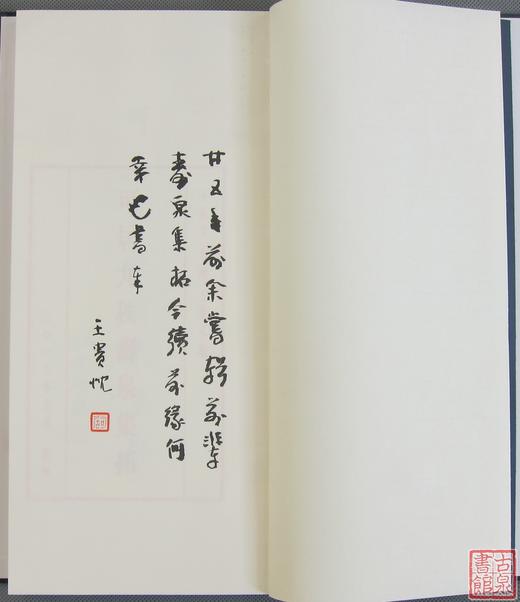 廿五年前余嘗輯前輩
壽泉集拓今續前緣何
幸也書
王貴忱
古泉書館